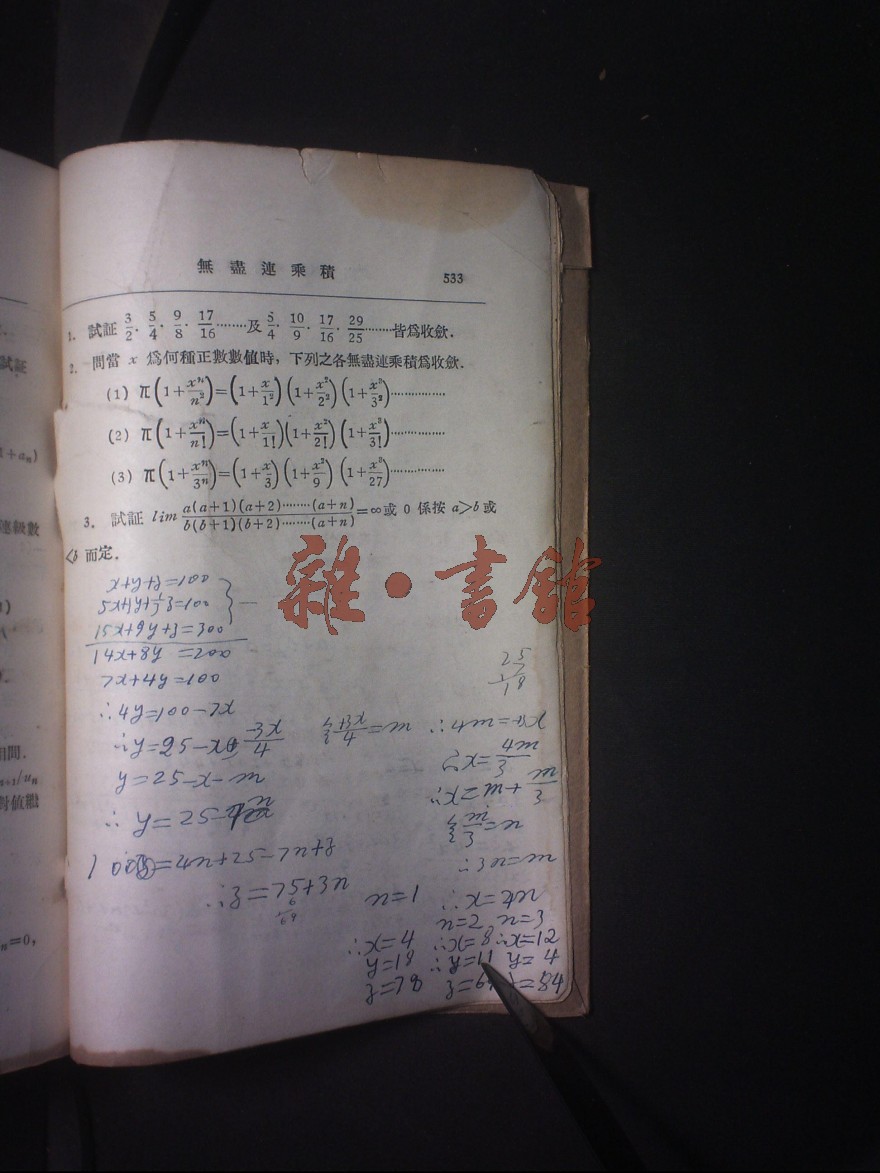 無盡連乘積 533
1. 試証 3/2. 5/4. 9/8. 17/16········及 5/4. 10/9. 17/16. 29/25········皆爲收歛.
2. 問當 x 爲何種正數數值時, 下列之各無盡連乘積爲收歛.
(1) π(1+xⁿ/n²)=(1+x/1²)(1+x²/2²)(1+x³/3²)················
(2) π(1+xⁿ/n!)=(1+x/1!)(1+x²/2!)(1+x³/3!)················
(3) π(1+xⁿ/3ⁿ)=(1+x/3)(1+x²/9)(1+x³/27)················
3. 試証 lim a(a+1)(a+2)········(a+n)/b(b+1)(b+2)········(a+n)=∞或 0 係按 a>b 或
<b 而定.
雜·書館
x+y+z=100
5x+3y+1/3z=100
15x+9y+z=300
14x+8y =200
7x+4y=100
∴4y=100-7x
y=25-x-m
25
7
18
∴4m=-3x
x=4m/3
∴x=m+m/3
m/3=n
∴3n=m
∴z=75+3n
n=1 ∴x=4n
n=2 n=3
∴x=4 ∴x=8 ∴x=12
y=18 ∴y=11 y=4
z=78 z=84